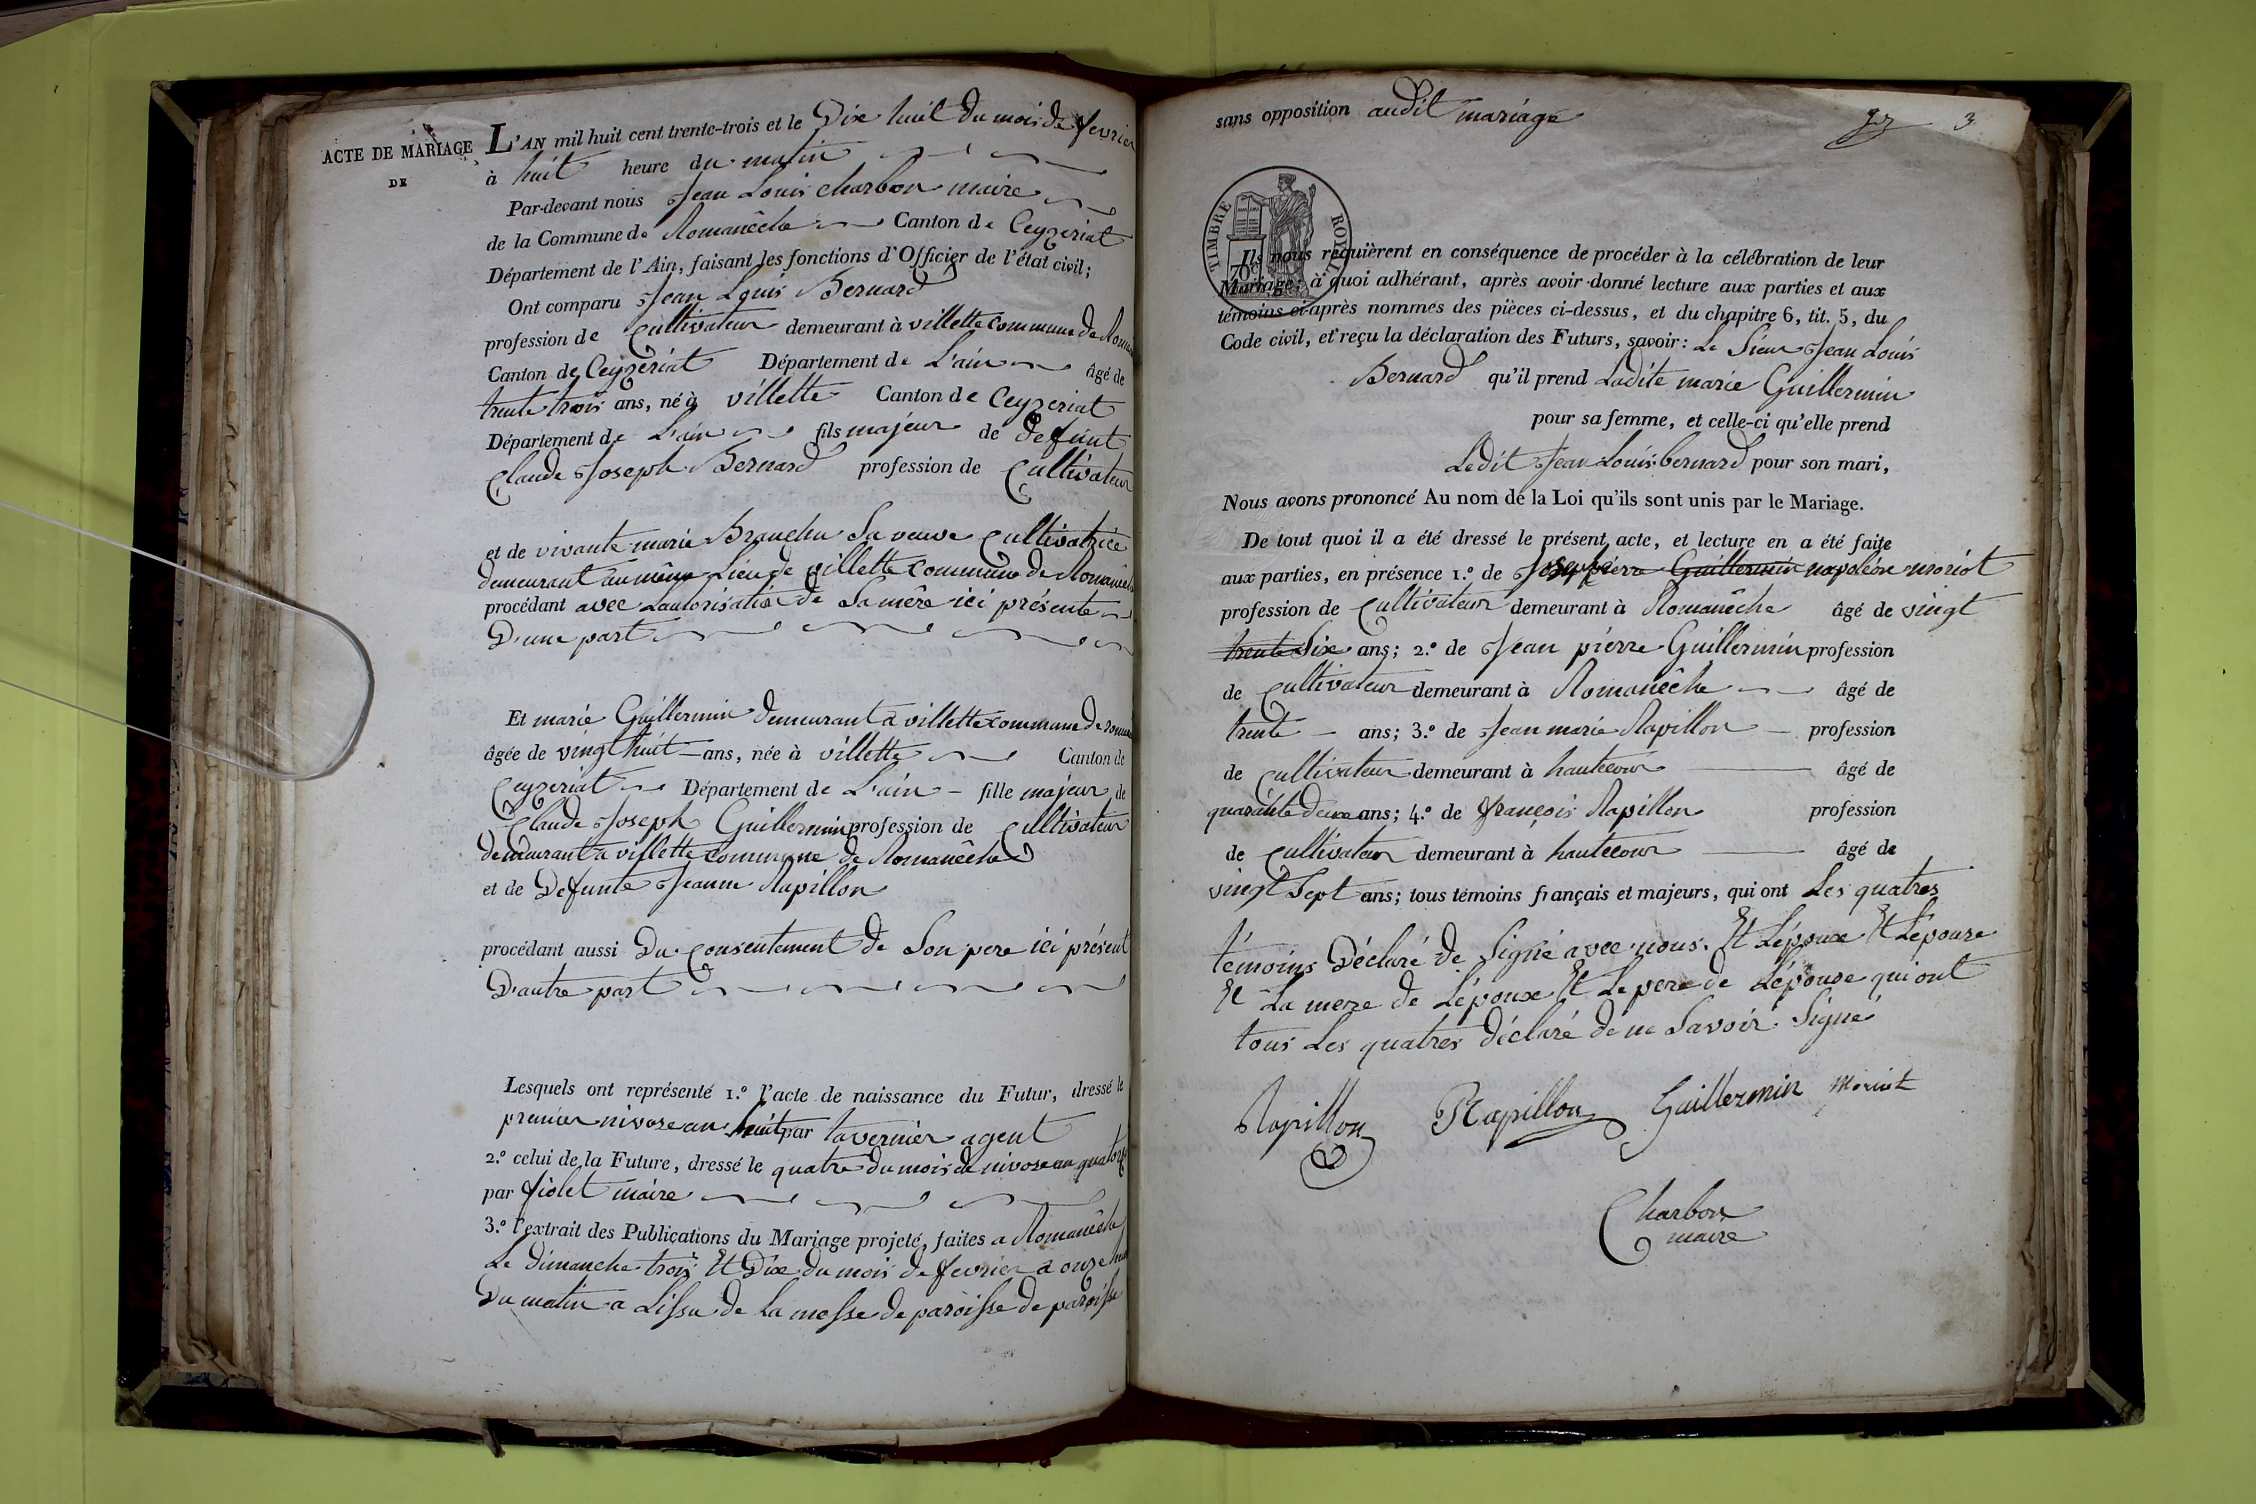 ACTE DE MARIAGE
DE
L'AN mil huit cent trente-trois et le Dix huit du mois de fevrier
à huit heure du matin
Par-devant nous Jean Louis charbon maire
de la Commune de Romanêche Canton de Ceyzeriat
Département de l'Ain, faisant les fonctions d'Officier de l'état civil;
Ont comparu Jean Louis Bernard
profession de Cultivateur demeurant à villette commune de Roma
Canton de Ceyzériat Département de L'ain âgé de
trente trois ans, né à villette Canton de Ceyzeriat
Département de L'ain fils majeur de defunt
Claude Joseph Bernard profession de Cultivateur
et de vivante marie Branchu Sa veuve Cultivatrice
demeurant au même Lieu de villette commune de Romanêche
procédant avec Lautorisation de Sa mère ici présente
D'une part
Et marie Guillermin demeurant a villette commune de roma
âgée de vingt huit ans, née à villette Canton de
Ceyzeriat Département de L'ain fille majeur de
Claude Joseph Guillermin profession de Cultivateur
demeurant a villette commune de Romanêche
et de Defunte Jeanne Rapillon
procédant aussi Du Consentement de Son pere ici présent
D'autre part
Lesquels ont représenté 1.º l'acte de naissance du Futur, dressé le
premier nivose an huit par tavernier agent
2.º celui de la Future, dressé le quatre du mois de nivose an quatorze
par fiolet maire
3.º l'extrait des Publications du Mariage projeté, faites a Romanêche
Le dimanche trois Et Dix du mois de fevrier a onze
Du matin a Lissu de la messe de paroisse de paroisse
sans opposition audit mariage
3
TIMBRE ROYAL
70 c
Ils nous requièrent en conséquence de procéder à la célébration de leur
Mariage; à quoi adhérant, après avoir donné lecture aux parties et aux
témoins ci-après nommés des pièces ci-dessus, et du chapitre 6, tit. 5, du
Code civil, et reçu la déclaration des Futurs, savoir: Le Sieur Jean Louis
Bernard qu'il prend Ladite marie Guillermin
pour sa femme, et celle-ci qu'elle prend
Ledit Jean Louis bernard pour son mari,
Nous avons prononcé Au nom de la Loi qu'ils sont unis par le Mariage.
De tout quoi il a été dressé le présent acte, et lecture en a été faite
aux parties, en présence 1.º de pierre Guillermin napoléon moriot
profession de Cultivateur demeurant à Romanêche âgé de vingt
trente Six ans; 2.º de Jean pierre Guillermin profession
de Cultivateur demeurant à Romanêche âgé de
trente ans; 3.º de Jean marie Rapillon profession
de Cultivateur demeurant à hautecour âgé de
quarante deux ans; 4.º de françois Rapillon profession
de Cultivateur demeurant à hautecour âgé de
vingt Sept ans; tous témoins français et majeurs, qui ont Les quatres
témoins Déclaré de Signé avec nous. Et Lépoux Et Lépouse
Et La mere de Lépoux Et Le pere de Lépouse qui ont
tous Les quatres déclaré de ne Savoir Signé
Rapillon Rapillon Guillermin Moriot
Charbon
maire